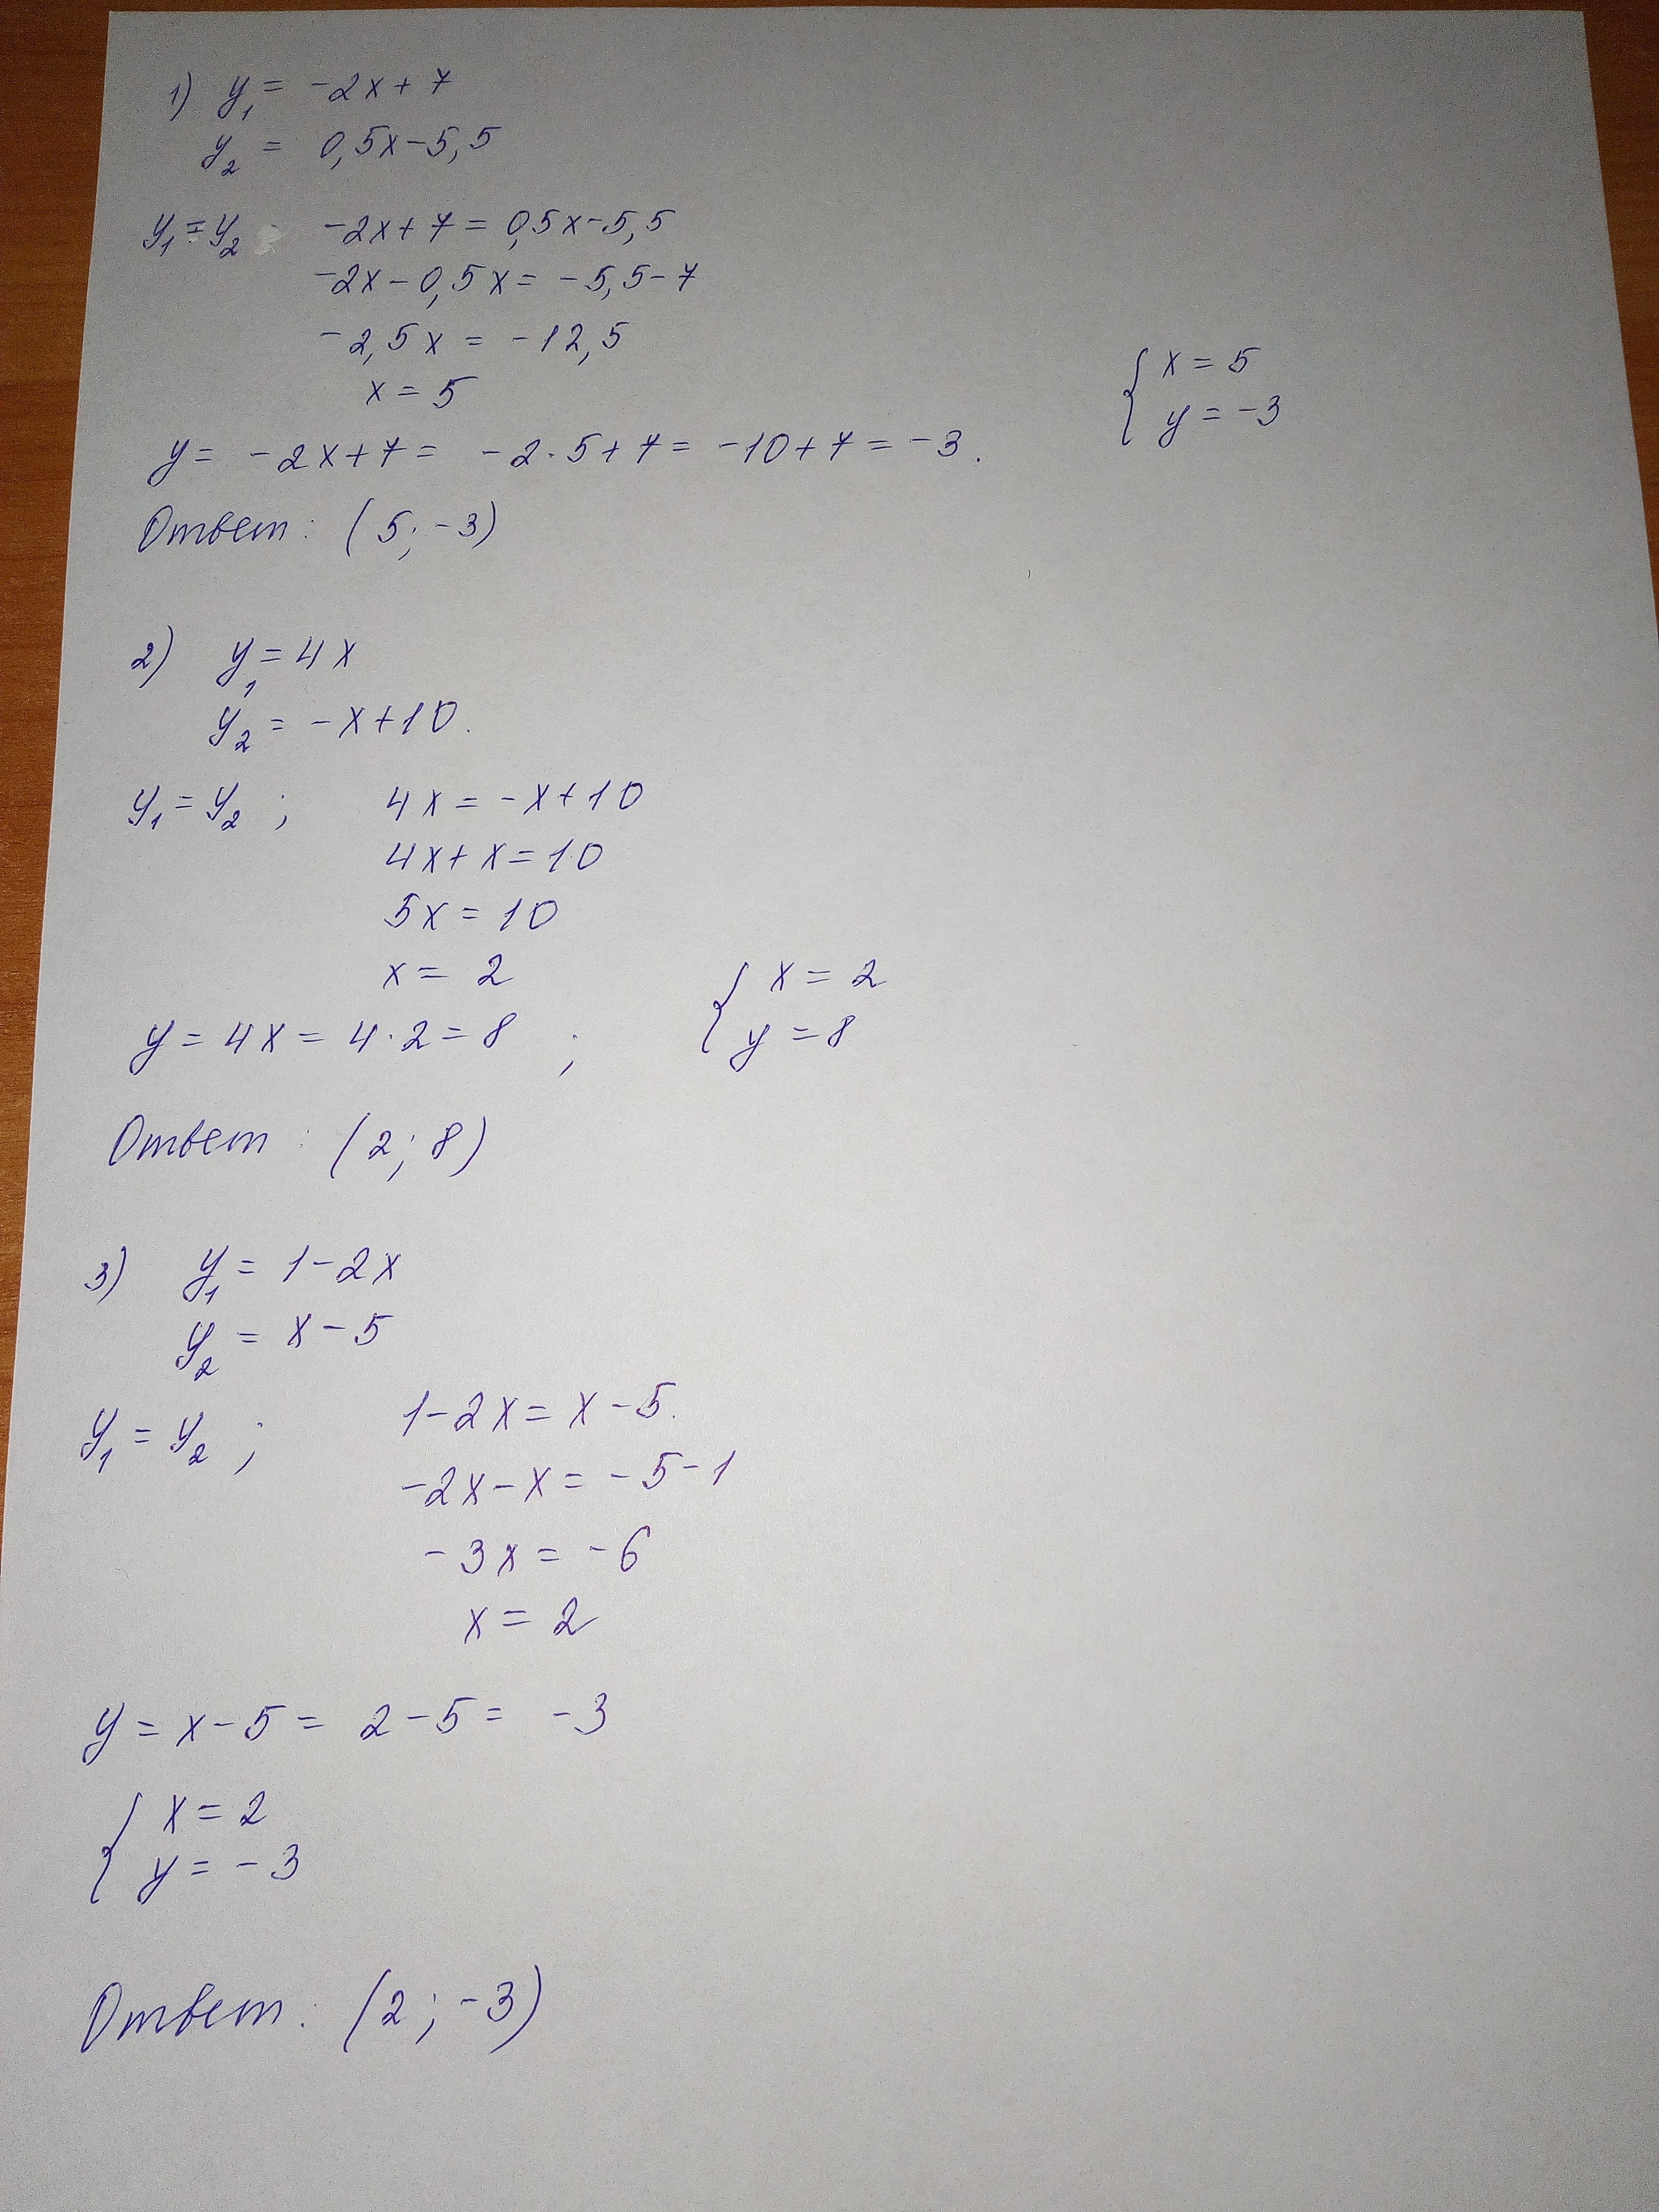 1) y₁ = -2x + 7
y₂ = 0,5x - 5,5
y₁ = y₂ -2x + 7 = 0,5x - 5,5
-2x - 0,5x = -5,5 - 7
-2,5x = -12,5
x = 5
{ x = 5
y = -3
y = -2x + 7 = -2·5 + 7 = -10 + 7 = -3.
Ответ: (5; -3)
2) y₁ = 4x
y₂ = -x + 10.
y₁ = y₂ ; 4x = -x + 10
4x + x = 10
5x = 10
x = 2
y = 4x = 4·2 = 8 ;
{ x = 2
y = 8
Ответ: (2; 8)
3) y₁ = 1 - 2x
y₂ = x - 5
y₁ = y₂ ; 1 - 2x = x - 5.
-2x - x = -5 - 1
-3x = -6
x = 2
y = x - 5 = 2 - 5 = -3
{ x = 2
y = -3
Ответ: (2; -3)